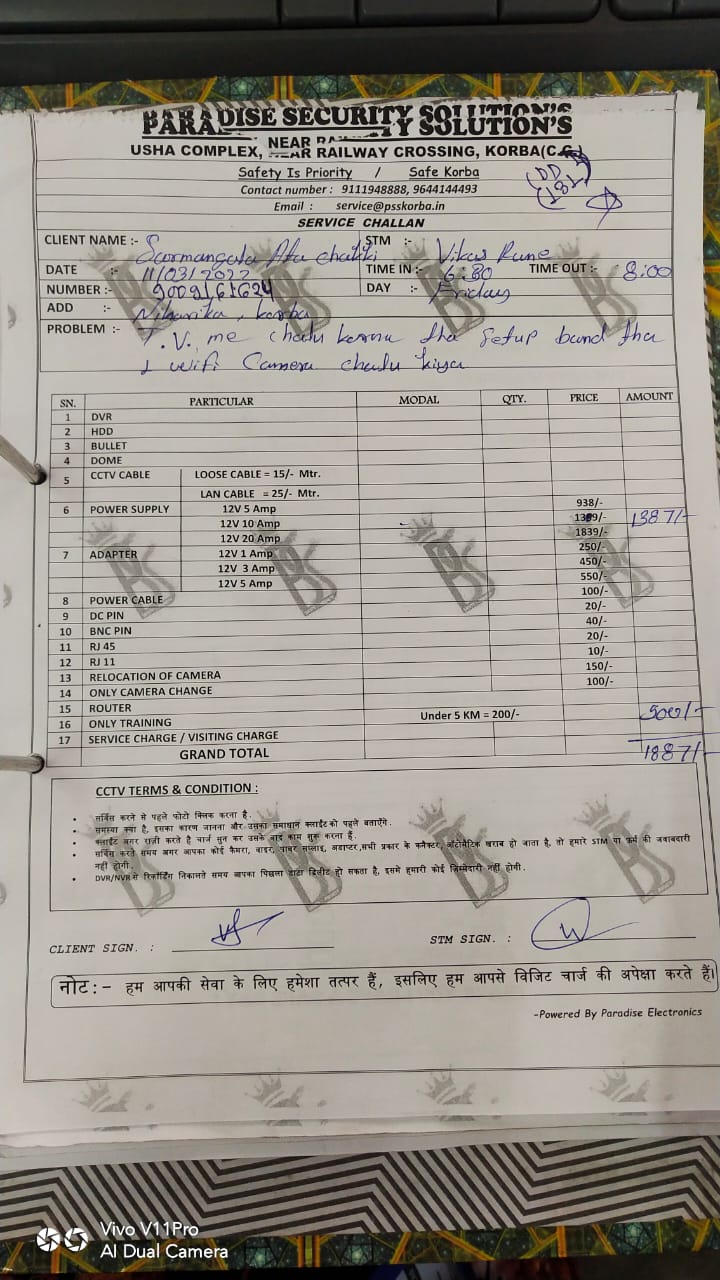 PARADISE SECURITY SOLUTION'S
USHA COMPLEX, NEAR RAILWAY CROSSING, KORBA(C.G.)
Safety Is Priority / Safe Korba
Contact number : 9111948888, 9644144493
Email : service@psskorba.in
SERVICE CHALLAN
CLIENT NAME :- Atta chakki STM :- Vikas
DATE :- 11/03/2022 TIME IN :- 6:30 TIME OUT :- 8:00
NUMBER :- DAY :- Friday
ADD :- Niharika, korba
PROBLEM :- T.V. me chalu karna tha setup band tha
1 wifi Camera chalu kiya
SN. PARTICULAR MODAL QTY. PRICE AMOUNT
1 DVR
2 HDD
3 BULLET
4 DOME
5 CCTV CABLE LOOSE CABLE = 15/- Mtr.
LAN CABLE = 25/- Mtr.
6 POWER SUPPLY 12V 5 Amp 938/-
12V 10 Amp 1387/-
12V 20 Amp 1839/-
7 ADAPTER 12V 1 Amp 250/-
12V 3 Amp 450/-
12V 5 Amp 550/-
8 POWER CABLE 100/-
9 DC PIN 20/-
10 BNC PIN 40/-
11 RJ 45 20/-
12 RJ 11 10/-
13 RELOCATION OF CAMERA 150/-
14 ONLY CAMERA CHANGE 100/-
15 ROUTER
16 ONLY TRAINING Under 5 KM = 200/- 500/-
17 SERVICE CHARGE / VISITING CHARGE
GRAND TOTAL 1887/-
CCTV TERMS & CONDITION :
सर्विस करने से पहले फोटो क्लिक करना है.
समस्या क्या है, इसका कारण जानना और उसका समाधान क्लाईंट को पहले बताएँगे.
क्लाईंट अगर राज़ी करते है चार्ज सुन कर उसके बाद काम शुरू करना हैं.
सर्विस करते समय अगर आपका कोई कैमरा, वाइर, पावर सप्लाइ, अडाप्टर,सभी प्रकार के कनैक्टर, ऑटोमैटिक खराब हो जाता है, तो हमारे STM या फ़र्म की जवाबदारी
नहीं होगी.
DVR/NVR से रिकॉर्डिंग निकालते समय आपका पिछला डाटा डिलीट हो सकता है, इसमे हमारी कोई ज़िम्मेदारी नहीं होगी.
CLIENT SIGN. : STM SIGN. :
नोट:- हम आपकी सेवा के लिए हमेशा तत्पर हैं, इसलिए हम आपसे विजिट चार्ज की अपेक्षा करते हैं।
-Powered By Paradise Electronics
Vivo V11Pro
AI Dual Camera